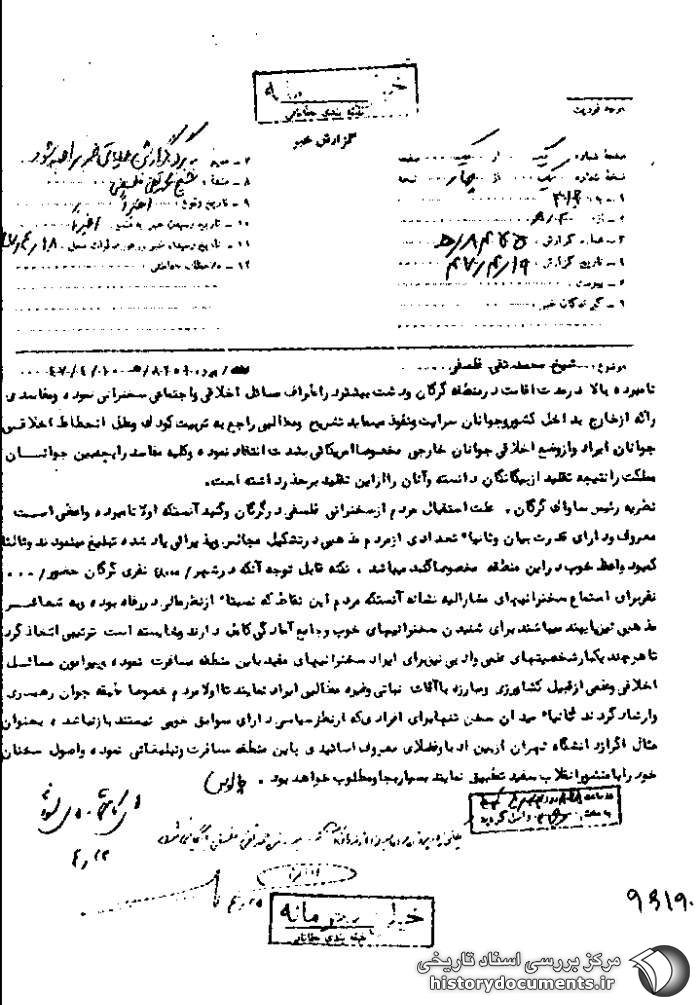 خیلی محرمانه
طبقه بندی حفاظتی
درجه فوریت
گزارش خبر
صفحه شماره یک از یک صفحه
نسخه شماره یک از چهار نسخه
۱ - به ۳۱۶
۲ - از
۳ - شماره گزارش
۴ - تاریخ گزارش ۴۷/۴/۱۹
۵ - پیوست
۶ - گیرندگان خبر
۸ - منشاء شیخ محمد تقی فلسفی
۹ - تاریخ وقوع اخیراً
۱۰ - تاریخ رسیدن خبر به منبع اخیراً
۱۱ - تاریخ رسیدن خبر به رهبر عملیات محل
۱۲ - ملاحظات حفاظتی
موضوع: شیخ محمد تقی فلسفی
نامبرده بالا در مدت اقامت در منطقه گرگان و دشت بیشتر در اطراف مسائل اخلاقی و اجتماعی سخنرانی نموده و مفاسدی
را که از خارج بداخل کشور و جوانان سرایت و نفوذ مینماید تشریح و مطالبی راجع به تربیت کودک و علل انحطاط اخلاقی
جوانان ایراد و از وضع اخلاقی جوانان خارجی مخصوصا امریکائی بشدت انتقاد نموده و کلیه مفاسد رایج بین جوانان
مملکت را نتیجه تقلید از بیگانگان دانسته و آنان را از این تقلید برحذر داشته است.
نظریه رئیس ساواک گرگان. علت استقبال مردم از سخنرانی فلسفی در گرگان و گنبد آنستکه اولا نامبرده واعظی است
معروف و دارای قدرت بیان و ثانیا" تعدادی از مردم مذهبی در تشکیل مجالس و پذیرائی یاد شده تبلیغ مینمودند و ثالثا
کمبود واعظ خوب در این منطقه مخصوصا گنبد میباشد. نکته قابل توجه آنکه در شهر/ نفری گرگان حضور/۰۰۰
نفر برای استماع سخنرانیهای مشارالیه نشانه آنستکه مردم این نقاط که نسبتا" از نظر مالی در رفاه بوده و به شعائر
مذهبی نیز پابند میباشند برای شنیدن سخنرانیهای خوب و جامع آمادگی کامل دارند و شایسته است ترتیبی اتخاذ گردد
تا هر چند یکبار شخصیتهای علمی و ادبی نیز برای ایراد سخنرانیهای مفید باین منطقه مسافرت نموده و پیرامون مسائل
اخلاقی و علمی از قبیل کشاورزی و مبارزه با آفات نباتی و غیره مطالبی ایراد نمایند تا اولا مردم خصوصا طبقه جوان رهبری
و ارشاد گردند ثانیا" میدان سخن تنها برای افرادی که از نظر سیاسی دارای سوابق خوبی نیستند باز نباشد بعنوان
مثال اگر از دانشگاه تهران از بین ادبا و فضلای معروف اساتیدی باین منطقه مسافرت و تبلیغاتی نموده و اصول سخنان
خود را با منشور انقلاب سفید تطبیق نمایند بسیار بجا و مطلوب خواهد بود.
خیلی محرمانه
طبقه بندی حفاظتی
مرکز بررسی اسناد تاریخی
historydocuments.ir